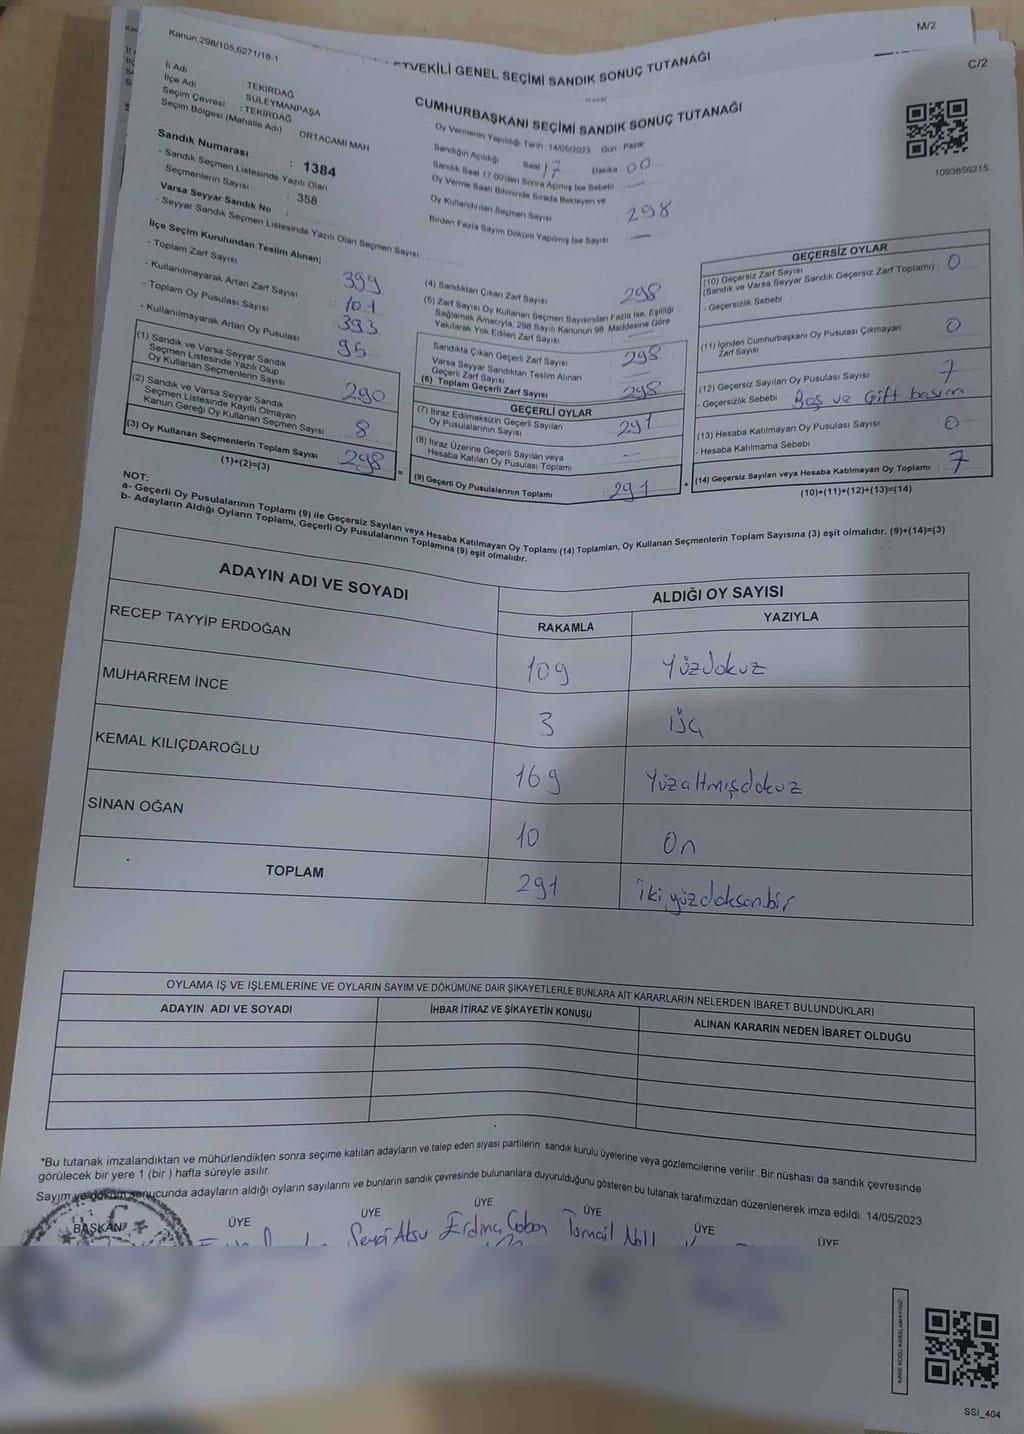 M/2
Kanun;298/105,6271/18-1
ETVEKİLİ GENEL SEÇİMİ SANDIK SONUÇ TUTANAĞI
C/2
CUMHURBAŞKANI SEÇİMİ SANDIK SONUÇ TUTANAĞI
1093856215
İl Adı TEKİRDAĞ
İlçe Adı SÜLEYMANPAŞA
Seçim Çevresi : TEKİRDAĞ
Seçim Bölgesi (Mahalle Adı) ORTACAMİ MAH
Sandık Numarası : 1384
- Sandık Seçmen Listesinde Yazılı Olan
Seçmenlerin Sayısı : 358
Varsa Seyyar Sandık No :
- Seyyar Sandık Seçmen Listesinde Yazılı Olan Seçmen Sayısı
Oy Vermenin Yapıldığı Tarih : 14/05/2023 Gün Pazar
Sandığın Açıldığı Saat 17 Dakika 00
Sandık Saat 17.00'den Sonra Açılmış İse Sebebi —
Oy Verme Saati Bitiminde Sırada Bekleyen ve
Oy Kullandırılan Seçmen Sayısı 298
Birden Fazla Sayım Döküm Yapılmış İse Sayısı —
İlçe Seçim Kurulundan Teslim Alınan;
- Toplam Zarf Sayısı 399
- Kullanılmayarak Artan Zarf Sayısı 101
- Toplam Oy Pusulası Sayısı 393
- Kullanılmayarak Artan Oy Pusulası 95
(1) Sandık ve Varsa Seyyar Sandık
Seçmen Listesinde Yazılı Olup
Oy Kullanan Seçmenlerin Sayısı 290
(2) Sandık ve Varsa Seyyar Sandık
Seçmen Listesinde Kayıtlı Olmayan
Kanun Gereği Oy Kullanan Seçmen Sayısı 8
(3) Oy Kullanan Seçmenlerin Toplam Sayısı 298
(1)+(2)=(3)
(4) Sandıktan Çıkan Zarf Sayısı 298
(5) Zarf Sayısı Oy Kullanan Seçmen Sayısından Fazla İse, Eşitliği
Sağlamak Amacıyla, 298 Sayılı Kanunun 98. Maddesine Göre
Yakılarak Yok Edilen Zarf Sayısı —
Sandıkta Çıkan Geçerli Zarf Sayısı 298
Varsa Seyyar Sandıktan Teslim Alınan
Geçerli Zarf Sayısı —
(6) Toplam Geçerli Zarf Sayısı 298
GEÇERLİ OYLAR
(7) İtiraz Edilmeksizin Geçerli Sayılan
Oy Pusulalarının Sayısı 291
(8) İtiraz Üzerine Geçerli Sayılan veya
Hesaba Katılan Oy Pusulası Toplamı —
(9) Geçerli Oy Pusulalarının Toplamı 291
GEÇERSİZ OYLAR
(10) Geçersiz Zarf Sayısı
(Sandık ve Varsa Seyyar Sandık Geçersiz Zarf Toplamı) 0
- Geçersizlik Sebebi
(11) İçinden Cumhurbaşkanı Oy Pusulası Çıkmayan
Zarf Sayısı 0
(12) Geçersiz Sayılan Oy Pusulası Sayısı 7
- Geçersizlik Sebebi : Boş ve Çift basım
(13) Hesaba Katılmayan Oy Pusulası Sayısı 0
- Hesaba Katılmama Sebebi
(14) Geçersiz Sayılan veya Hesaba Katılmayan Oy Toplamı 7
(10)+(11)+(12)+(13)=(14)
NOT:
a- Geçerli Oy Pusulalarının Toplamı (9) ile Geçersiz Sayılan veya Hesaba Katılmayan Oy Toplamı (14) Toplamları, Oy Kullanan Seçmenlerin Toplam Sayısına (3) eşit olmalıdır. (9)+(14)=(3)
b- Adayların Aldığı Oyların Toplamı, Geçerli Oy Pusulalarının Toplamına (9) eşit olmalıdır.
ADAYIN ADI VE SOYADI ALDIĞI OY SAYISI
RAKAMLA YAZIYLA
RECEP TAYYİP ERDOĞAN 109 Yüzdokuz
MUHARREM İNCE 3 üç
KEMAL KILIÇDAROĞLU 169 Yüzaltmışdokuz
SİNAN OĞAN 10 On
TOPLAM 291 ikiyüzdoksanbir
OYLAMA İŞ VE İŞLEMLERİNE VE OYLARIN SAYIM VE DÖKÜMÜNE DAİR ŞİKAYETLERLE BUNLARA AİT KARARLARIN NELERDEN İBARET BULUNDUKLARI
ADAYIN ADI VE SOYADI İHBAR İTİRAZ VE ŞİKAYETİN KONUSU ALINAN KARARIN NEDEN İBARET OLDUĞU
*Bu tutanak imzalandıktan ve mühürlendikten sonra seçime katılan adayların ve talep eden siyasi partilerin sandık kurulu üyelerine veya gözlemcilerine verilir .Bir nüshası da sandık çevresinde
görülecek bir yere 1 (bir ) hafta süreyle asılır.
Sayım ve döküm sonucunda adayların aldığı oyların sayılarını ve bunların sandık çevresinde bulunanlara duyurulduğunu gösteren bu tutanak tarafımızdan düzenlenerek imza edildi. 14/05/2023
BAŞKAN ÜYE ÜYE ÜYE ÜYE ÜYE ÜYE
Aksu Erdinç Çoban İsmail
KARE KODU KARALAMAYINIZ!
SSİ_404